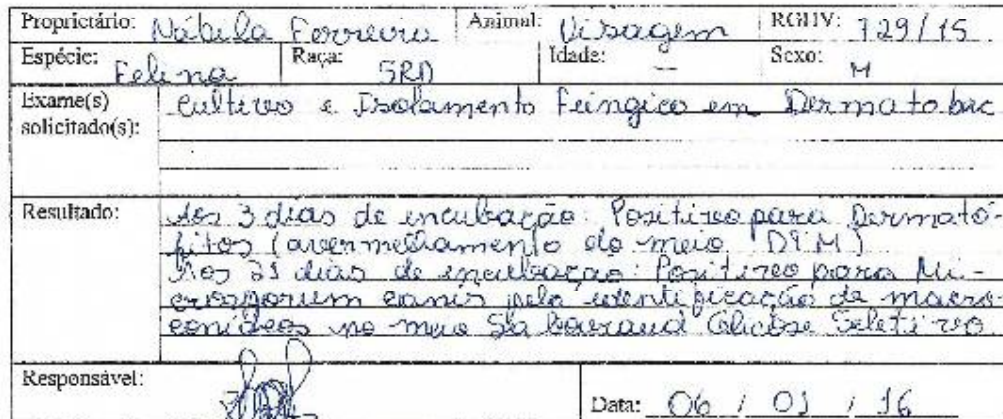 Proprietário: Nábila Ferreira Animal: Visagem RGHV: 729/15
Espécie: Felina Raça: SRD Idade: — Sexo: M
Exame(s) solicitado(s): Cultivo e Isolamento Fúngico em Dermatobac
Resultado: Aos 3 dias de incubação: Positivo para Dermató-
fitos (avermelhamento do meio DTM)
Aos 21 dias de incubação: Positivo para Mi-
crosporum canis pela identificação de macro-
conídeos no meio Sabouraud Glicose Seletivo
Responsável:
Data: 06 / 01 / 16